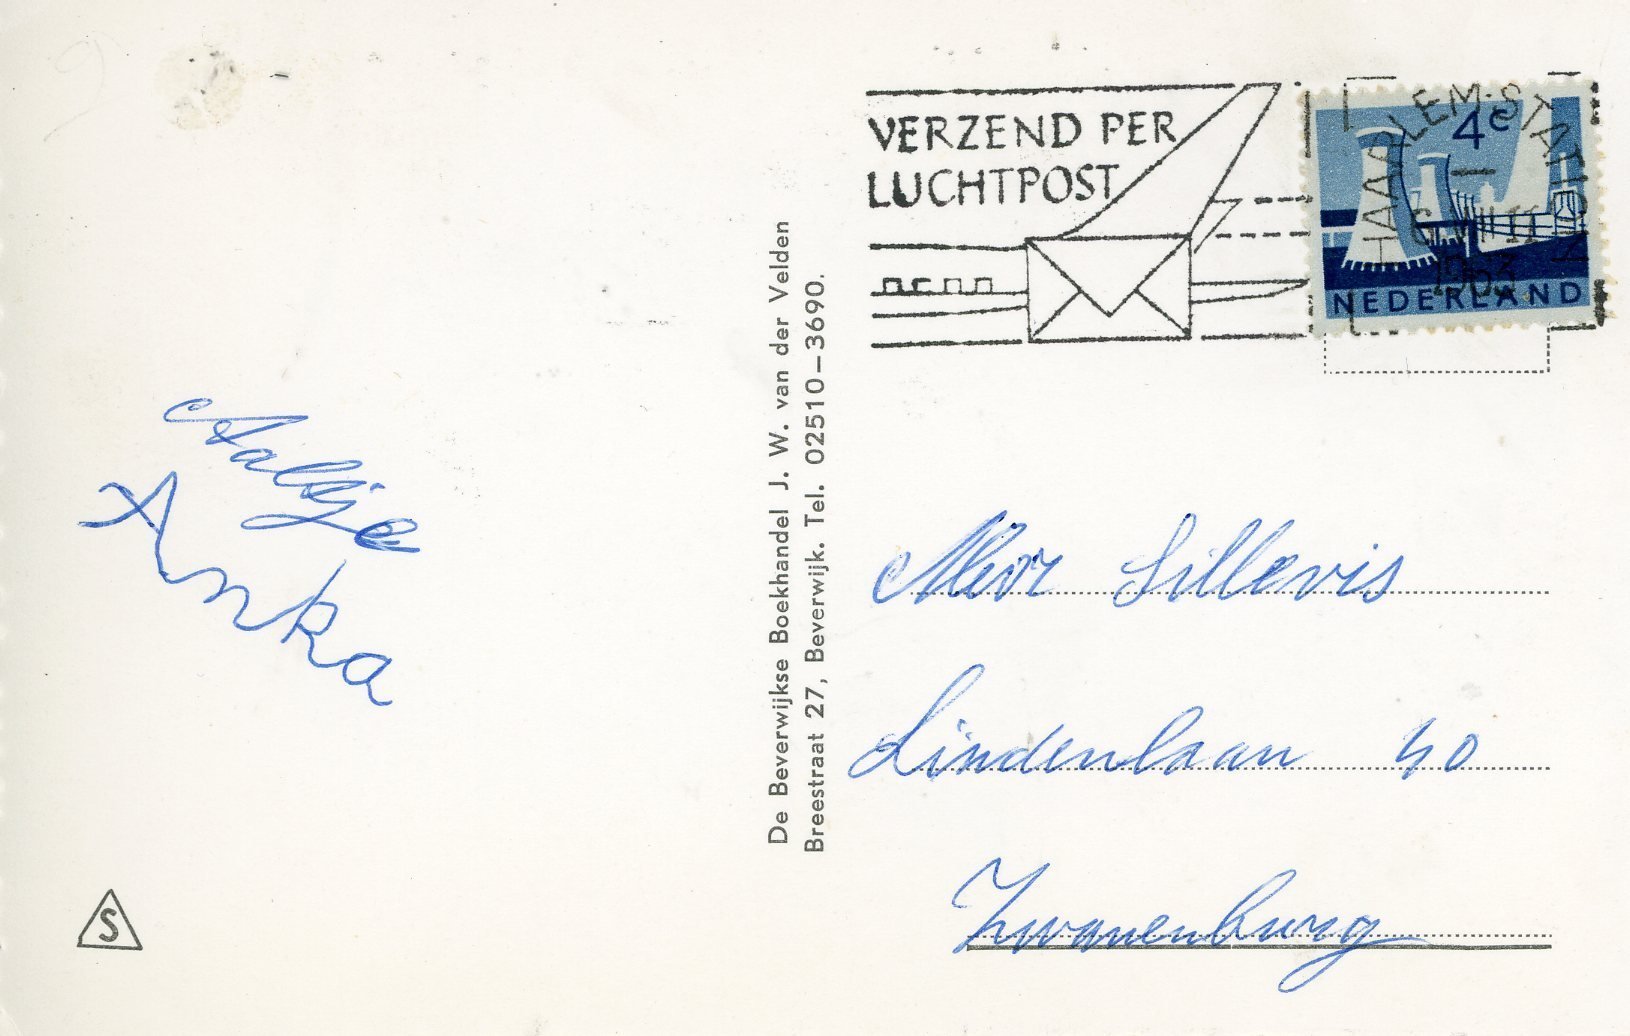 VERZEND PER
LUCHTPOST
HAARLEM-STATION
1963
4c
NEDERLAND
De Beverwijkse Boekhandel J. W. van der Velden
Breestraat 27, Beverwijk. Tel. 02510-3690.
Aaltje
Anka
Mevr Sillevis
Lindenlaan 40
Zwanenburg
S